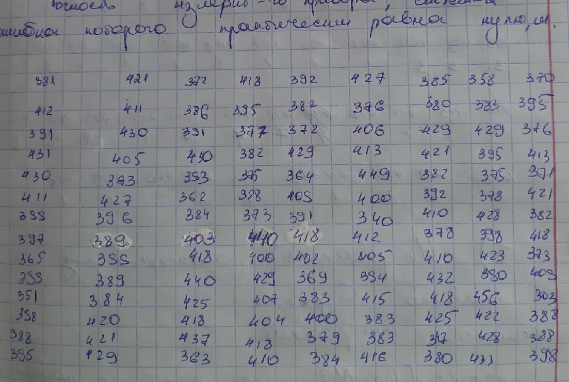 ошибка которого практически равна нулю, м.
381 421 372 418 392 427 385 358 370
412 411 386 395 382 376 380 383 395
391 430 391 377 372 406 429 429 376
431 405 430 382 429 413 421 395 413
430 373 353 375 364 449 382 375 371
411 427 362 378 405 400 392 378 421
396 384 373 391 340 410 428 382
397 389 403 440 418 412 378 398 418
365 418 400 402 405 410 423 373
389 440 429 369 394 432 390 409
351 384 425 407 383 415 418 456
420 418 404 400 383 425 422 388
388 421 437 418 379 383 428 388
395 429 363 410 384 416 380 433 398